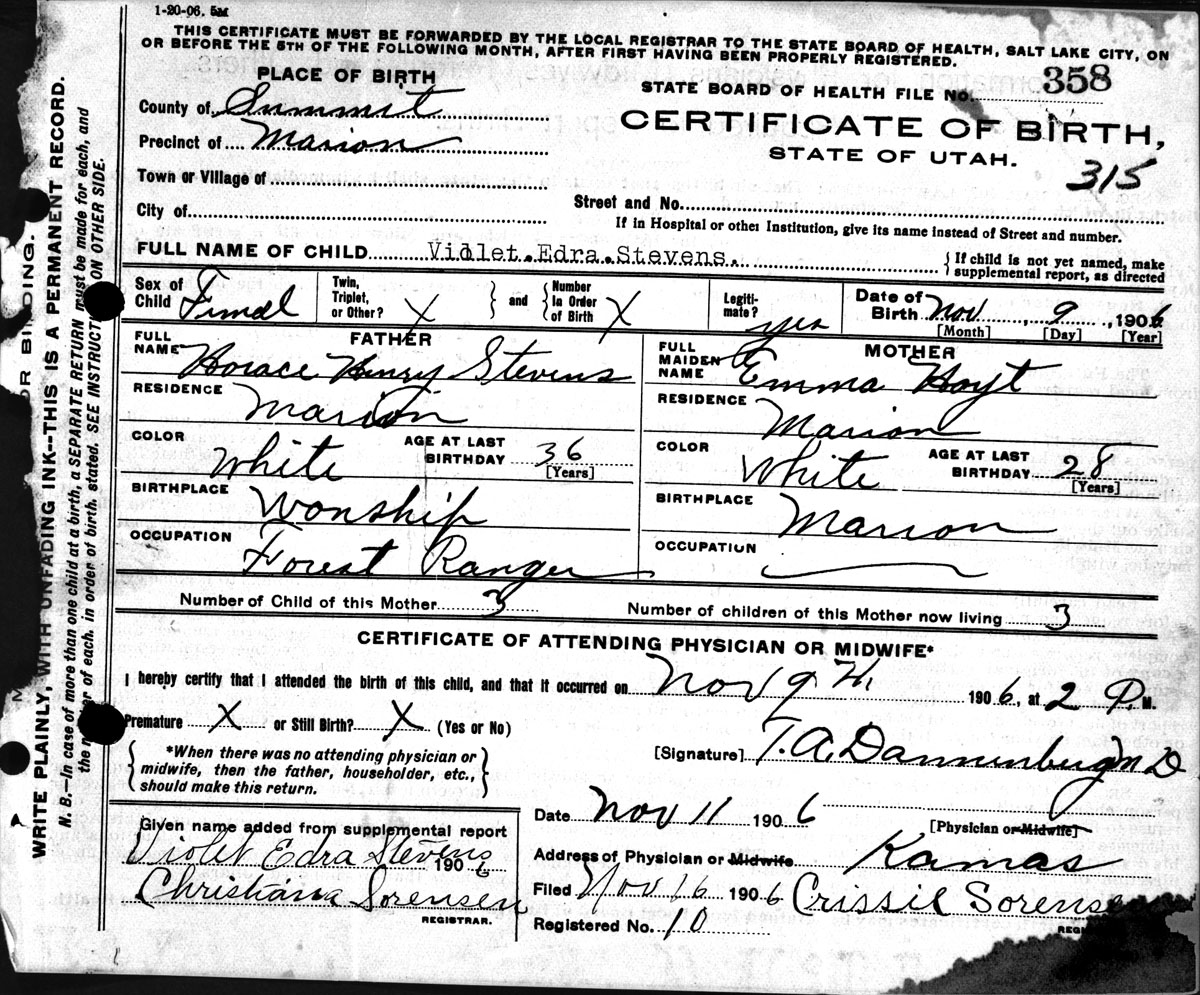 1-20-06. 5M
THIS CERTIFICATE MUST BE FORWARDED BY THE LOCAL REGISTRAR TO THE STATE BOARD OF HEALTH, SALT LAKE CITY, ON
OR BEFORE THE 5TH OF THE FOLLOWING MONTH, AFTER FIRST HAVING BEEN PROPERLY REGISTERED.
PLACE OF BIRTH
STATE BOARD OF HEALTH FILE NO. 358
County of Summit
CERTIFICATE OF BIRTH,
Precinct of Marion
STATE OF UTAH.
315
Town or Village of
Street and No.
City of
If in Hospital or other Institution, give its name instead of Street and number.
FULL NAME OF CHILD Violet Edra Stevens.
{ If child is not yet named, make
supplemental report, as directed
Sex of Child Fimal
Twin, Triplet, or Other? X } and { Number In Order of Birth X
Legiti-mate? yes
Date of Birth Nov, 9, 1906
[Month] [Day] [Year]
FATHER
FULL NAME Horace Henry Stevens
MOTHER
FULL MAIDEN NAME Emma Hoyt
RESIDENCE Marion
RESIDENCE Marion
COLOR White AGE AT LAST BIRTHDAY 36 [Years]
COLOR White AGE AT LAST BIRTHDAY 28 [Years]
BIRTHPLACE Wonship
BIRTHPLACE Marion
OCCUPATION Forest Ranger
OCCUPATION
Number of Child of this Mother 3 Number of children of this Mother now living 3
CERTIFICATE OF ATTENDING PHYSICIAN OR MIDWIFE*
I hereby certify that I attended the birth of this child, and that it occurred on Nov 9th, 1906, at 2 P. M.
Premature X or Still Birth? X (Yes or No)
{ *When there was no attending physician or
midwife, then the father, householder, etc.,
should make this return. }
[Signature] T. A. Dannenberg M D
Date Nov 11 1906
[Physician or Midwife]
Given name added from supplemental report
Violet Edra Stevens
1906
Christiana Sorensen
REGISTRAR.
Address of Physician or Midwife Kamas
Filed Nov 16 1906 Crissie Sorensen
Registered No. 10
WRITE PLAINLY, WITH UNFADING INK--THIS IS A PERMANENT RECORD.
N. B.—In case of more than one child at a birth, a SEPARATE RETURN must be made for each, and
the of each, in order of birth, stated. SEE INSTRUCT ON OTHER SIDE.
OR BINDING.